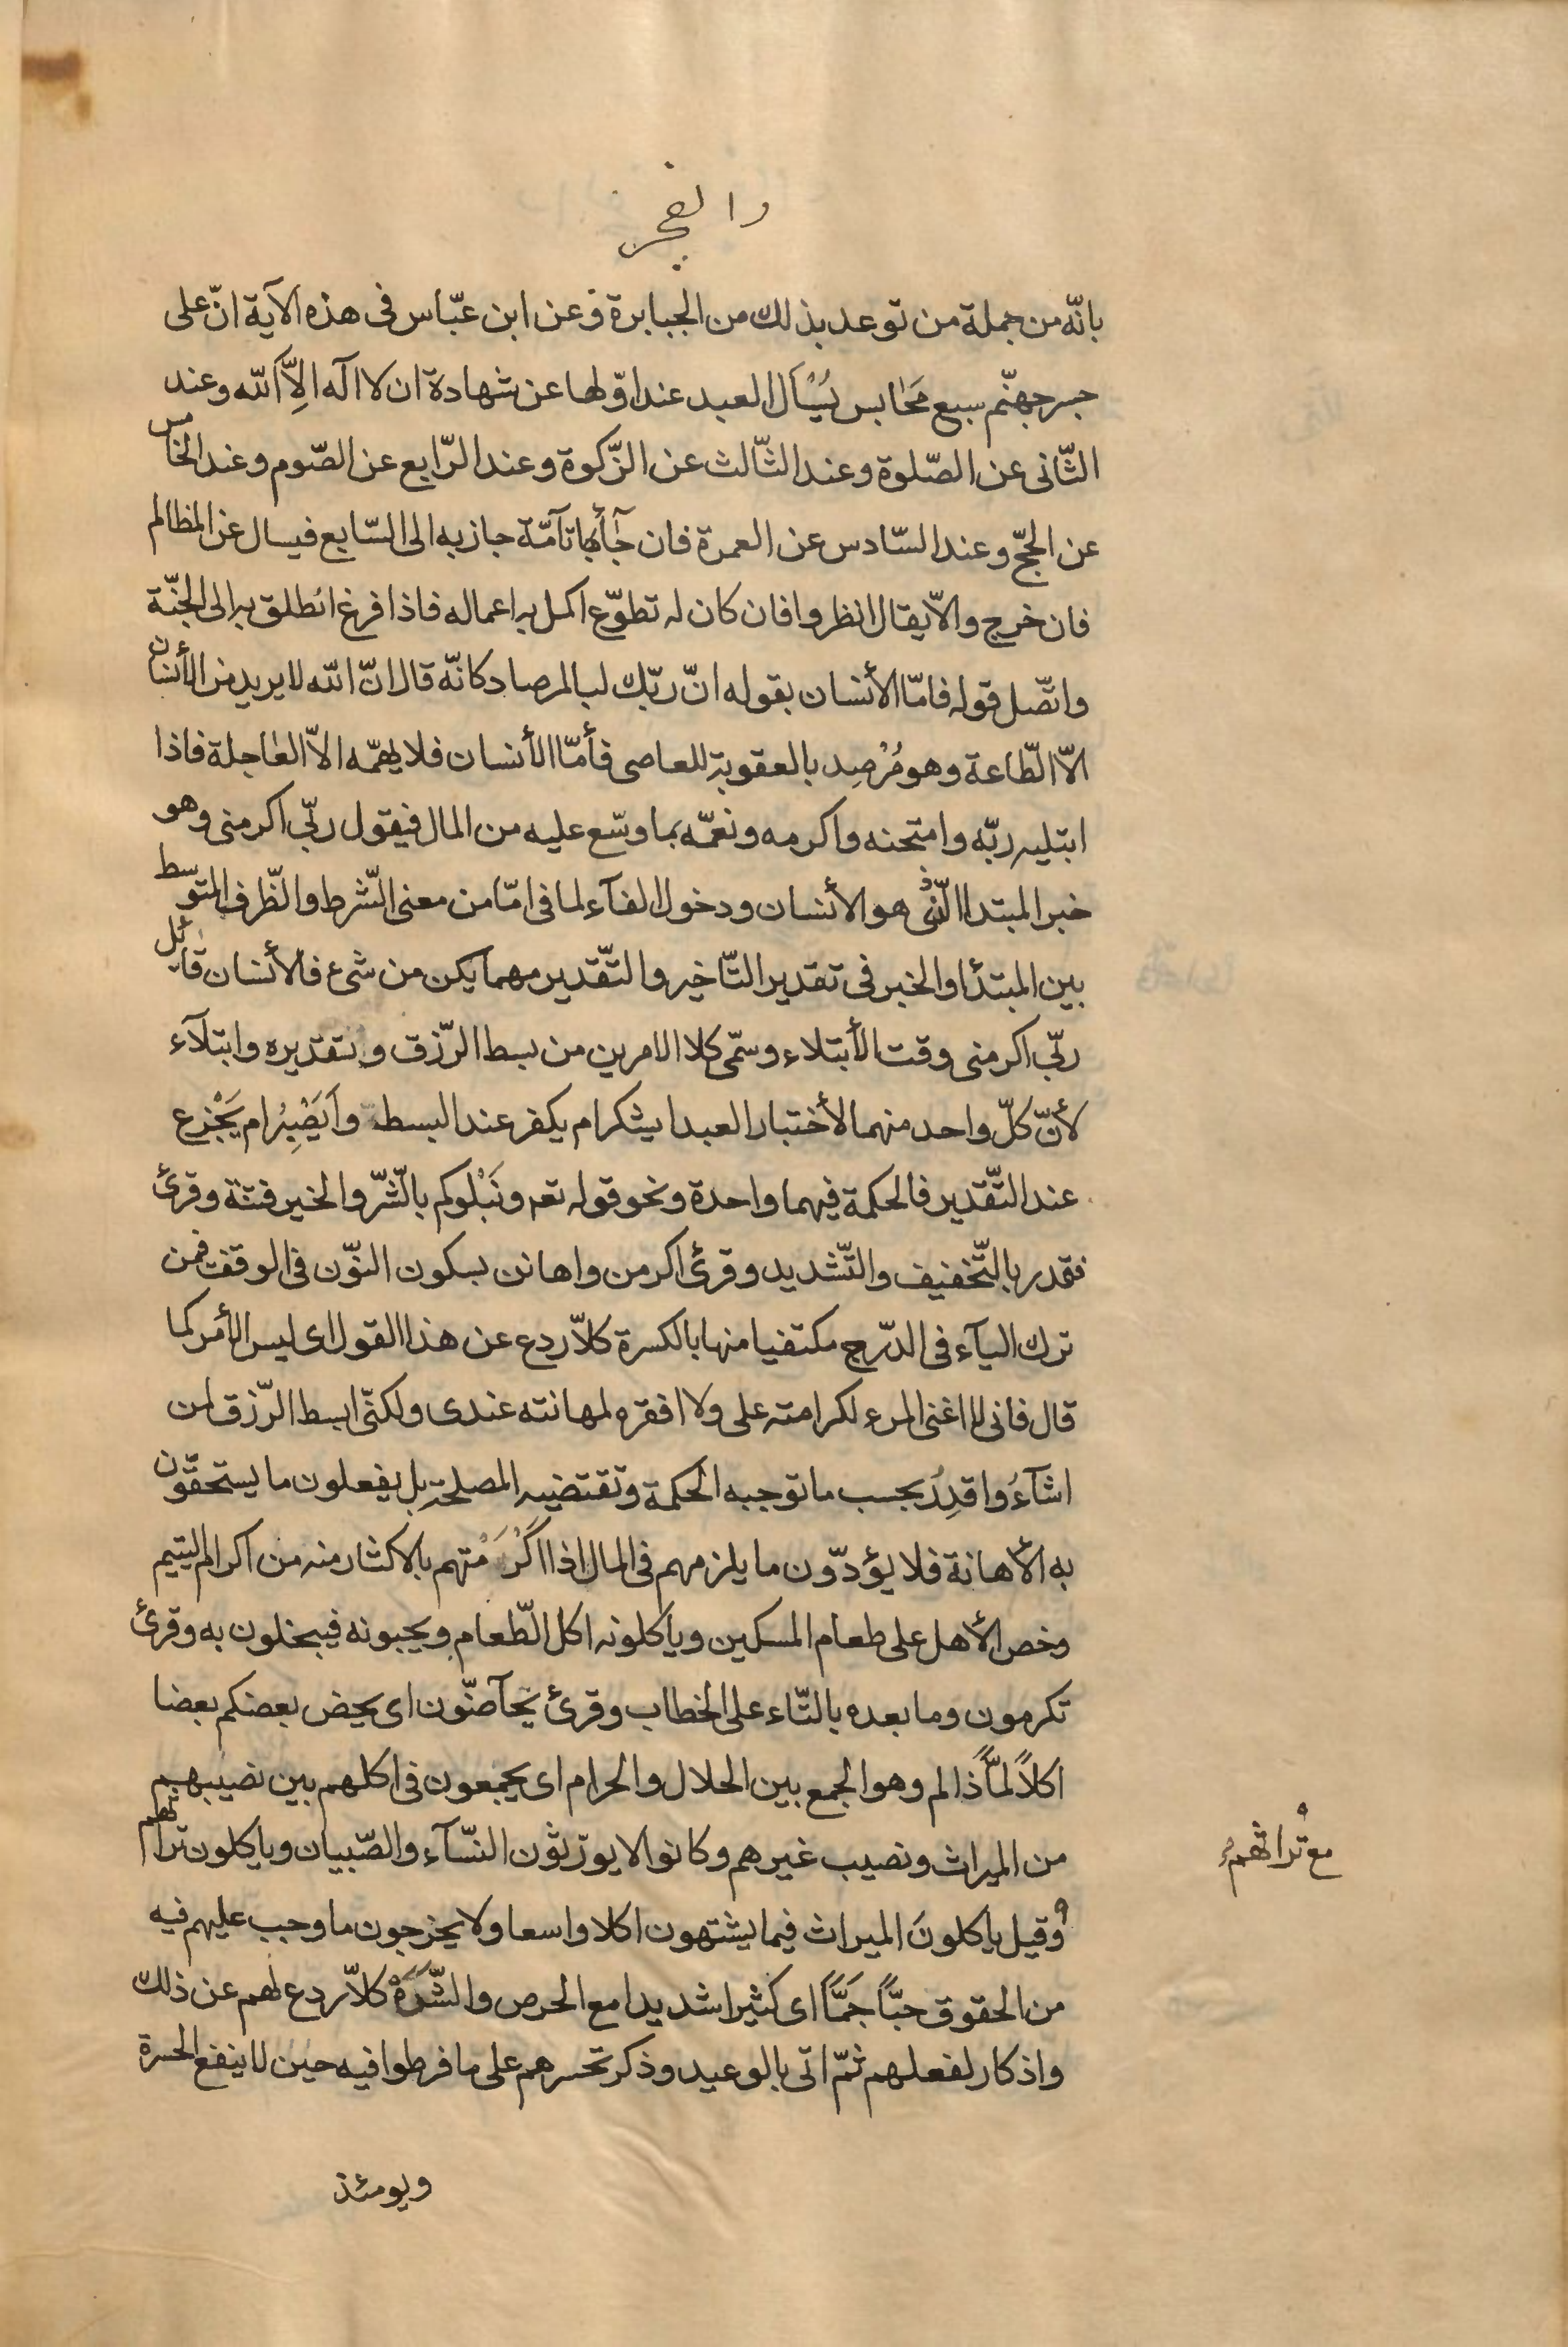 والفجر
بانّه من جملة من توعد بذلك من الجبابرة وعن ابن عبّاس فى هذه الآية انّ على
جسر جهنّم سبع مَحَابس يُسْأَل العبد عند اوّلها عن شهادة ان لا اله الاّ الله وعند
الثّانى عن الصّلوة وعند الثّالث عن الزّكوة وعند الرّابع عن الصّوم وعند الخامس
عن الحجّ وعند السّادس عن العمرة فان جآء بها تآمّة جاز به الى السّابع فيسال عن المظالم
فان خرج والاّ يقال انظروا فان كان له تطوّع اكمل به اعماله فاذا فرغ انطلق به الى الجنّة
واتّصل قوله فامّا الأنسان بقوله انّ ربّك لبالمرصاد كانّه قال انّ الله لا يريد من الأنسان
الاّ الطّاعة وهو مُرْصِد بالعقوبة للعاصى فأمّا الأنسان فلا يهمّه الاّ العاجلة فاذا
ابتليه ربّه وامتحنه واكرمه ونعمّه بما وسّع عليه من المال فيقول ربّى اكرمنى وهو
خبر المبتدا الّذى هو الأنسان ودخول الفآء لما فى امّا من معنى الشّرط والظّرف المتوسط
بين المبتدأ والخبر فى تقدير التّاخير والتّقدير مهما يكن من شىء فالأنسان قائل
ربّى اكرمنى وقت الأبتلاء وسمّى كلا الامرين من بسط الرّزق وتقديره وابتلآء
لأنّ كلّ واحد منهما لأختبار العبد ايشكر ام يكفر عند البسط وأَيَصْبِرُ ام يَجْزع
عند التّقدير فالحكمة فيهما واحدة ونحو قوله تعه ونَبْلوكم بالشّرّ والخير فتنة وقرئ
فقدر بالتّخفيف والتّشديد وقرئ اكرمن واهانن بسكون النّون فى الوقف فمن
ترك اليآء فى الدّرج مكتفيا منها بالكسرة كلاّ ردع عن هذا القول اى ليس الأمر كما
قال فانى لا اغنى المرء لكرامته على ولا افقره لمهانته عندى ولكنّى ابسط الرّزق لمن
اشآءُ واقدِرُ بحسب ما توجبه الحكمة وتقتضيه المصلحة بل يفعلون ما يستحقّون
به الأهانة فلا يؤدّون ما يلزمهم فى المال اذا اكْرَمْتهم بالاكثار منه من اكرام اليتيم
وخص الأهل على طعام المسكين وياكلونه اكل الطّعام ويحبونه فيبخلون به وقرئ
تكرمون وما بعده بالتّاء على الخطاب وقرئ تحآضّون اى يحض بعضكم بعضا
اكلاً لمّاً ذا لم وهو الجمع بين الحلال والحرام اى يجمعون فى اكلهم بين نصيبهم
من الميراث ونصيب غيرهم وكانوا لا يورّثون النّسآء والصّبيان وياكلون تراثهم
مع تراثهم
وقيل ياكلونَ الميراث فيما يشتهون اكلا واسعا ولا يخرجون ما وجب عليهم فيه
من الحقوق حبّاً جَمّاً اى كثيرا شديدا مع الحرص والشَّرَهْ كلاّ ردع لهم عن ذلك
واذكار لفعلهم ثمّ اتى بالوعيد وذكر تحسرهم على ما فرطوا فيه حين لا ينفع الحسرة
ويومئذ